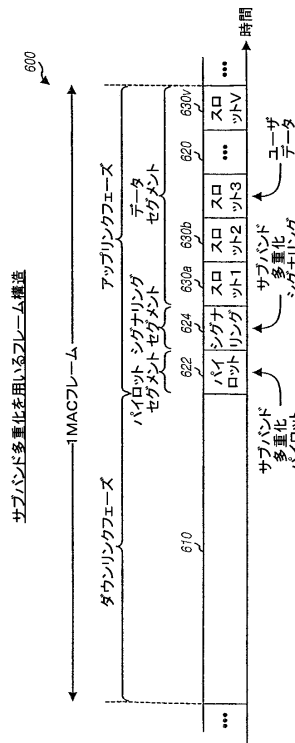 サブバンド多重化を用いるフレーム構造
600
1MACフレーム
ダウンリンクフェーズ
アップリンクフェーズ
パイロット
セグメント
シグナリング
セグメント
データ
セグメント
610
622
624
630a
630b
620
630v
•••
パイ
ロット
シグナ
リング
スロ
ット1
スロ
ット2
スロ
ット3
•••
スロ
ットV
•••
時間
サブバンド
多重化
パイロット
サブバンド
多重化
シグナリング
ユーザ
データ